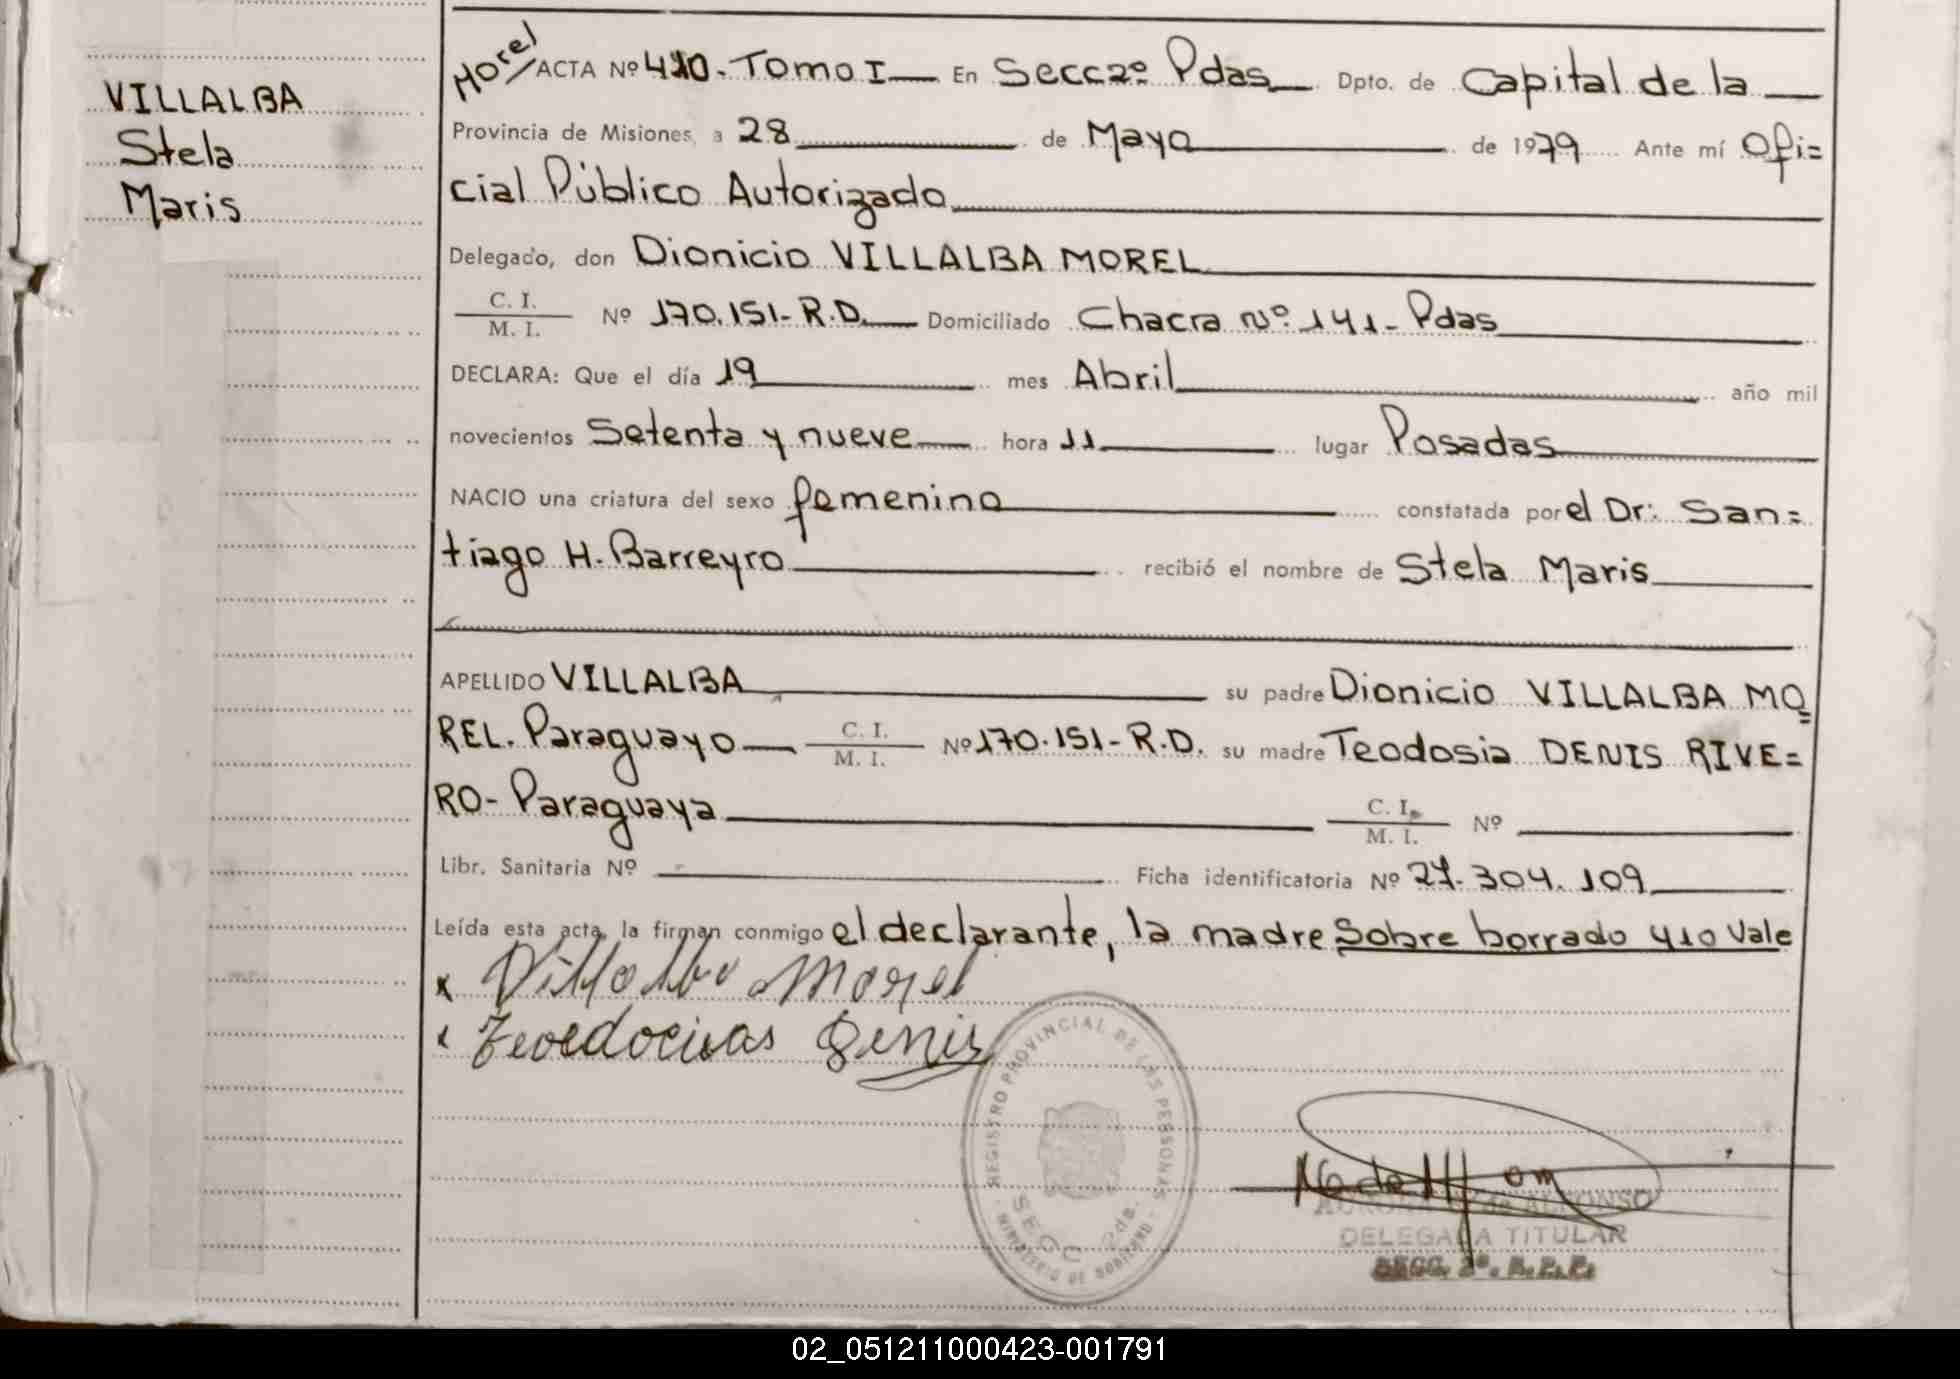 VILLALBA
Stela
Maris
Morel/ACTA Nº 410.Tomo I En Secc 2º Pdas Dpto. de Capital de la
Provincia de Misiones, a 28 de Mayo de 1979 Ante mí Ofi=
cial Público Autorizado
Delegado, don Dionicio VILLALBA MOREL
C. I.
M. I.
Nº 170.151-R.D. Domiciliado Chacra Nº 141- Pdas
DECLARA: Que el día 19 mes Abril año mil
novecientos Setenta y nueve hora 11 lugar Posadas
NACIO una criatura del sexo femenino constatada por el Dr: San=
tiago H. Barreyro recibió el nombre de Stela Maris
APELLIDO VILLALBA su padre Dionicio VILLALBA MO=
REL. Paraguayo C. I. M. I. Nº 170.151-R.D. su madre Teodosia DENIS RIVE=
RO- Paraguaya C. I. M. I. Nº
Libr. Sanitaria Nº Ficha identificatoria Nº 27.304.109
Leída esta acta, la firman conmigo el declarante, la madre Sobre borrado 410 Vale
x Villalba Morel
x Denis
REGISTRO PROVINCIAL DE LAS PERSONAS
SECC 2da.
MINISTERIO DE GOBIERNO
de ALFONSO
DELEGADA TITULAR
SECC. 2º. R.P.P.
02_051211000423-001791